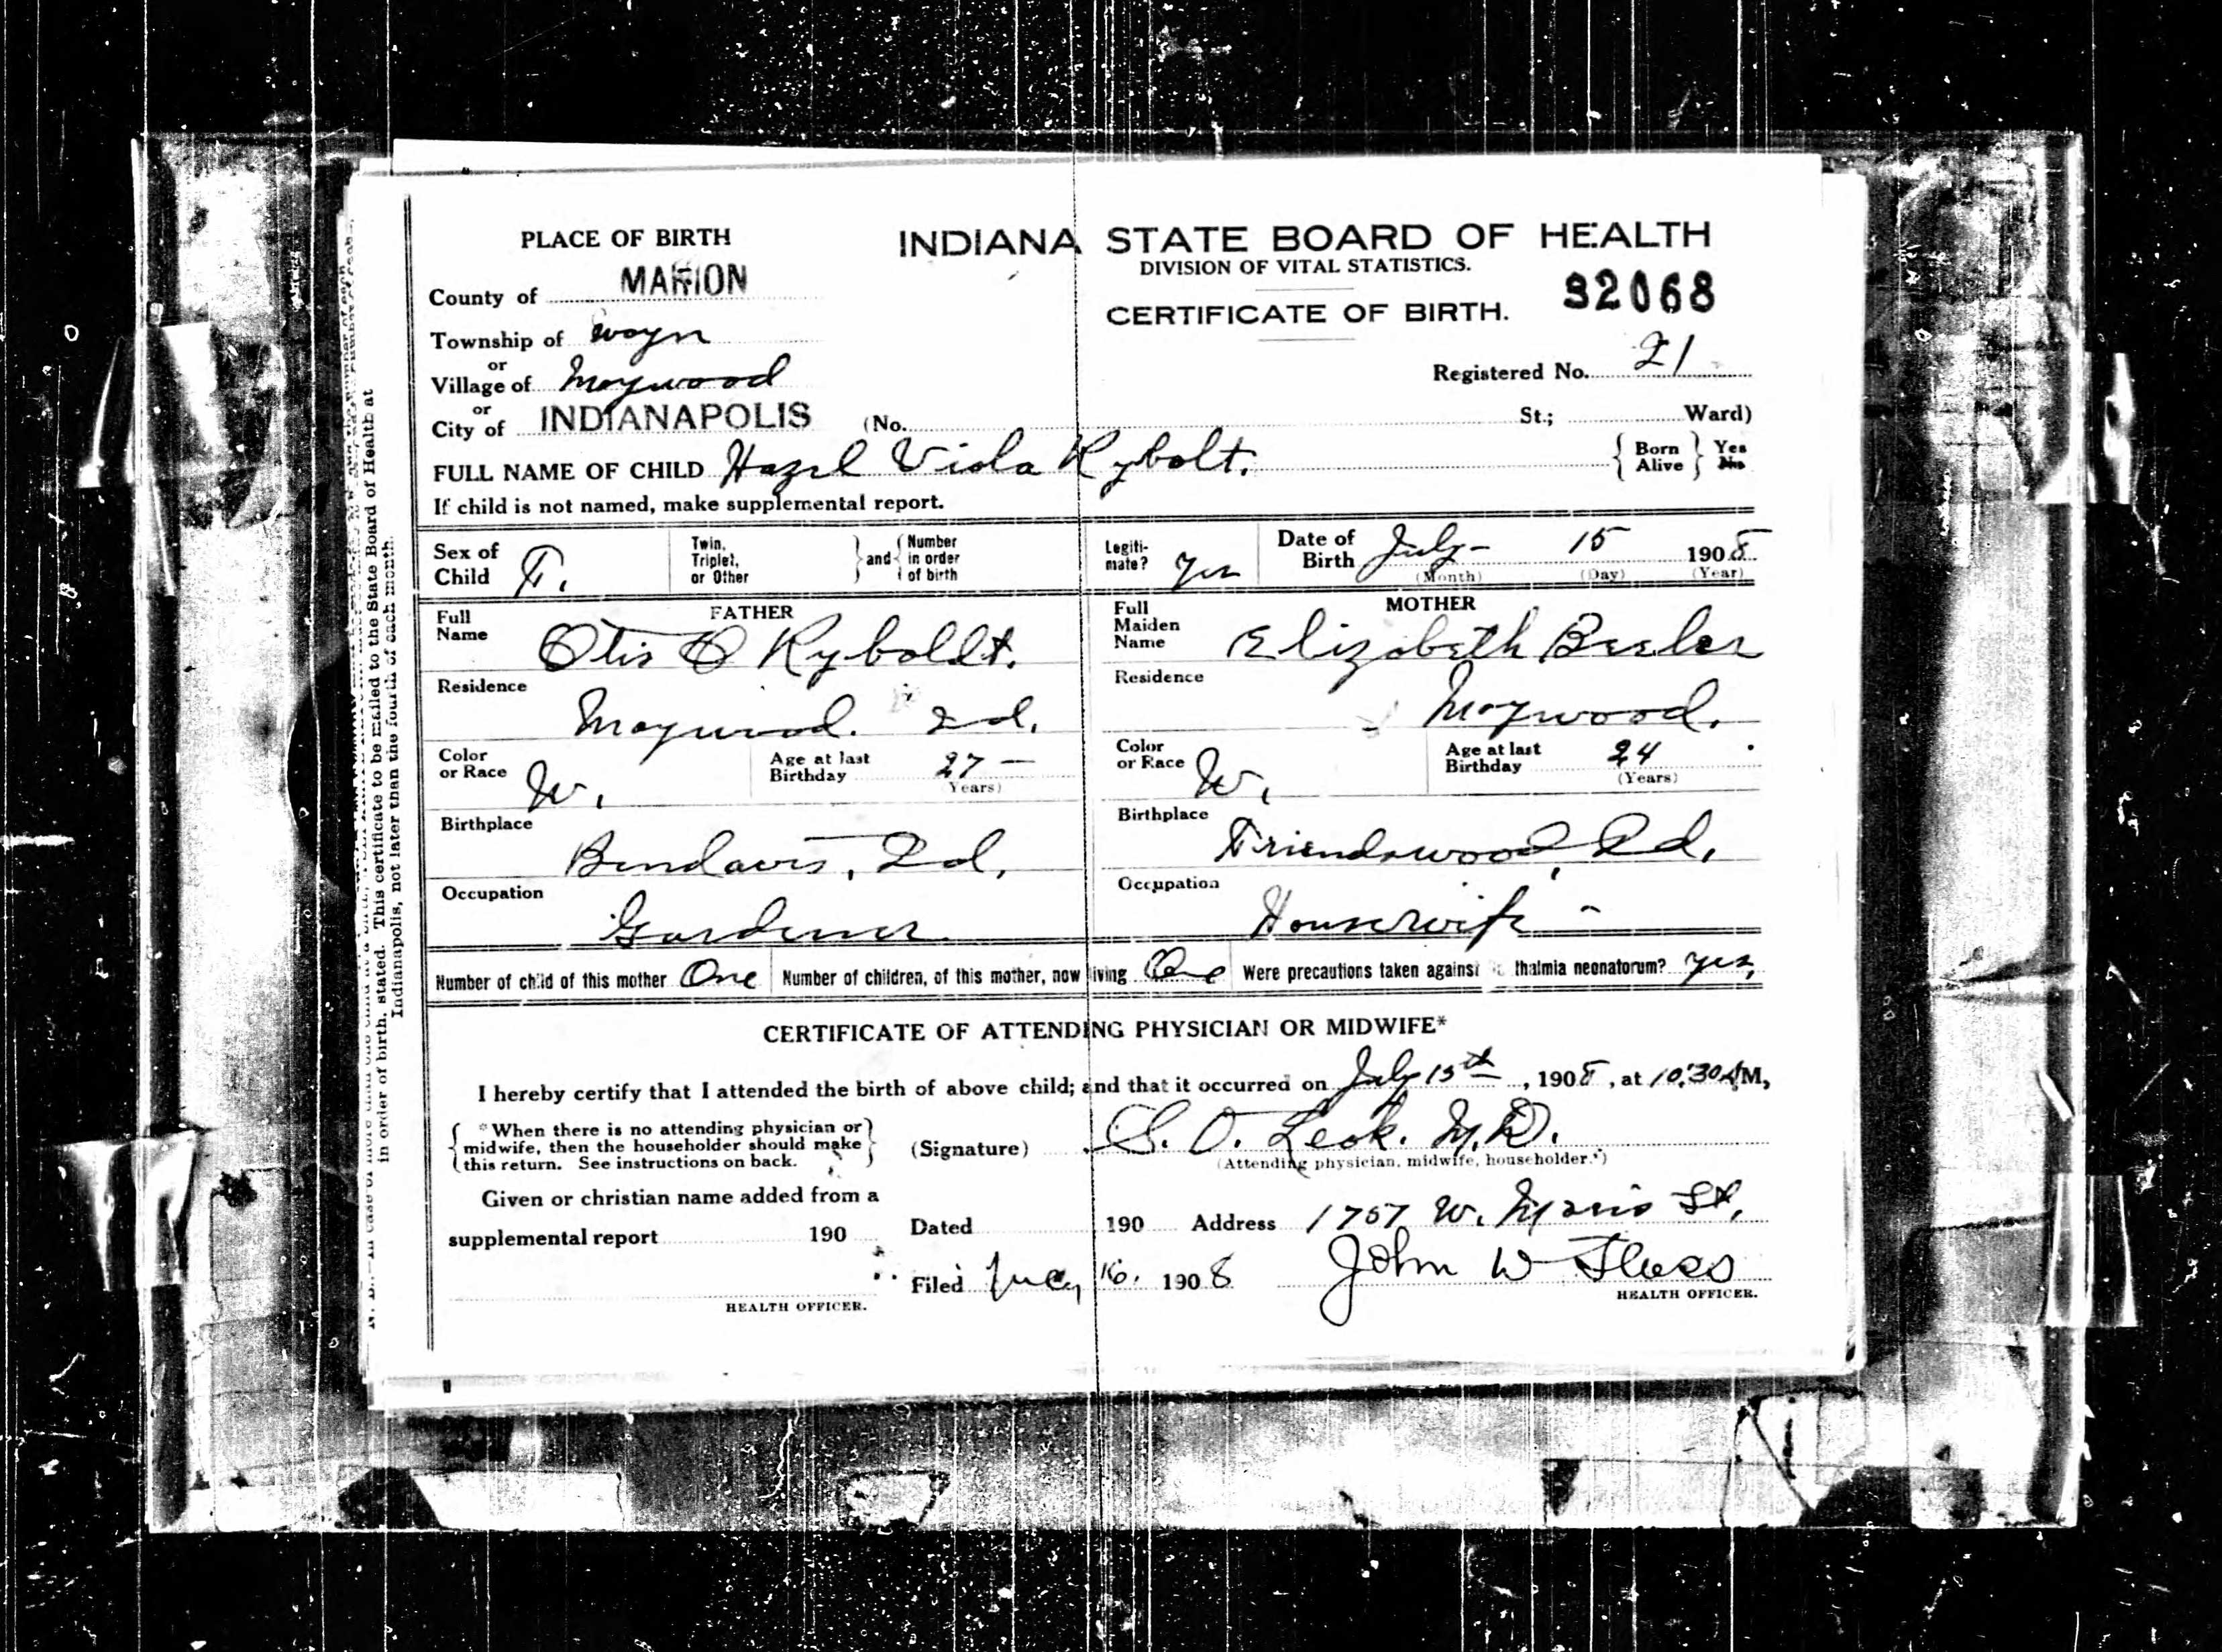 PLACE OF BIRTH
INDIANA STATE BOARD OF HEALTH
DIVISION OF VITAL STATISTICS.
County of MARION
CERTIFICATE OF BIRTH. 92068
Township of Wayn
or
Village of Maywood
Registered No. 21
or
City of INDIANAPOLIS (No. St.; Ward)
FULL NAME OF CHILD Hazel Viola Rybolt. { Born Alive } Yes No
If child is not named, make supplemental report.
Sex of Child F. Twin, Triplet, or Other } and { Number in order of birth Legiti-mate? Yes Date of Birth July - 15 1908
(Month) (Day) (Year)
FATHER
Full Name Otis O Ryboldt.
Residence
Maywood. Ind.
Color or Race W. Age at last Birthday 27 -
(Years)
Birthplace
Bendavis, Ind.
Occupation
Gardener
MOTHER
Full Maiden Name Elizabeth Beeler
Residence
Maywood.
Color or Race W. Age at last Birthday 24
(Years)
Birthplace
Friendswood, Ind.
Occupation
Housewife -
Number of child of this mother One Number of children, of this mother, now living One Were precautions taken against thalmia neonatorum? Yes,
CERTIFICATE OF ATTENDING PHYSICIAN OR MIDWIFE*
I hereby certify that I attended the birth of above child; and that it occurred on July 15th, 1908, at 10:30 AM,
{ *When there is no attending physician or
midwife, then the householder should make
this return. See instructions on back. }
(Signature) S. O. Leak. M.D.
(Attending physician, midwife, householder.*)
Given or christian name added from a
supplemental report 190
Dated 190 Address 1757 W. Morris St.
Filed July 16. 1908 John W
HEALTH OFFICER. HEALTH OFFICER.
in order of birth, stated. This certificate to be mailed to the State Board of Health at
Indianapolis, not later than the fourth of each month.